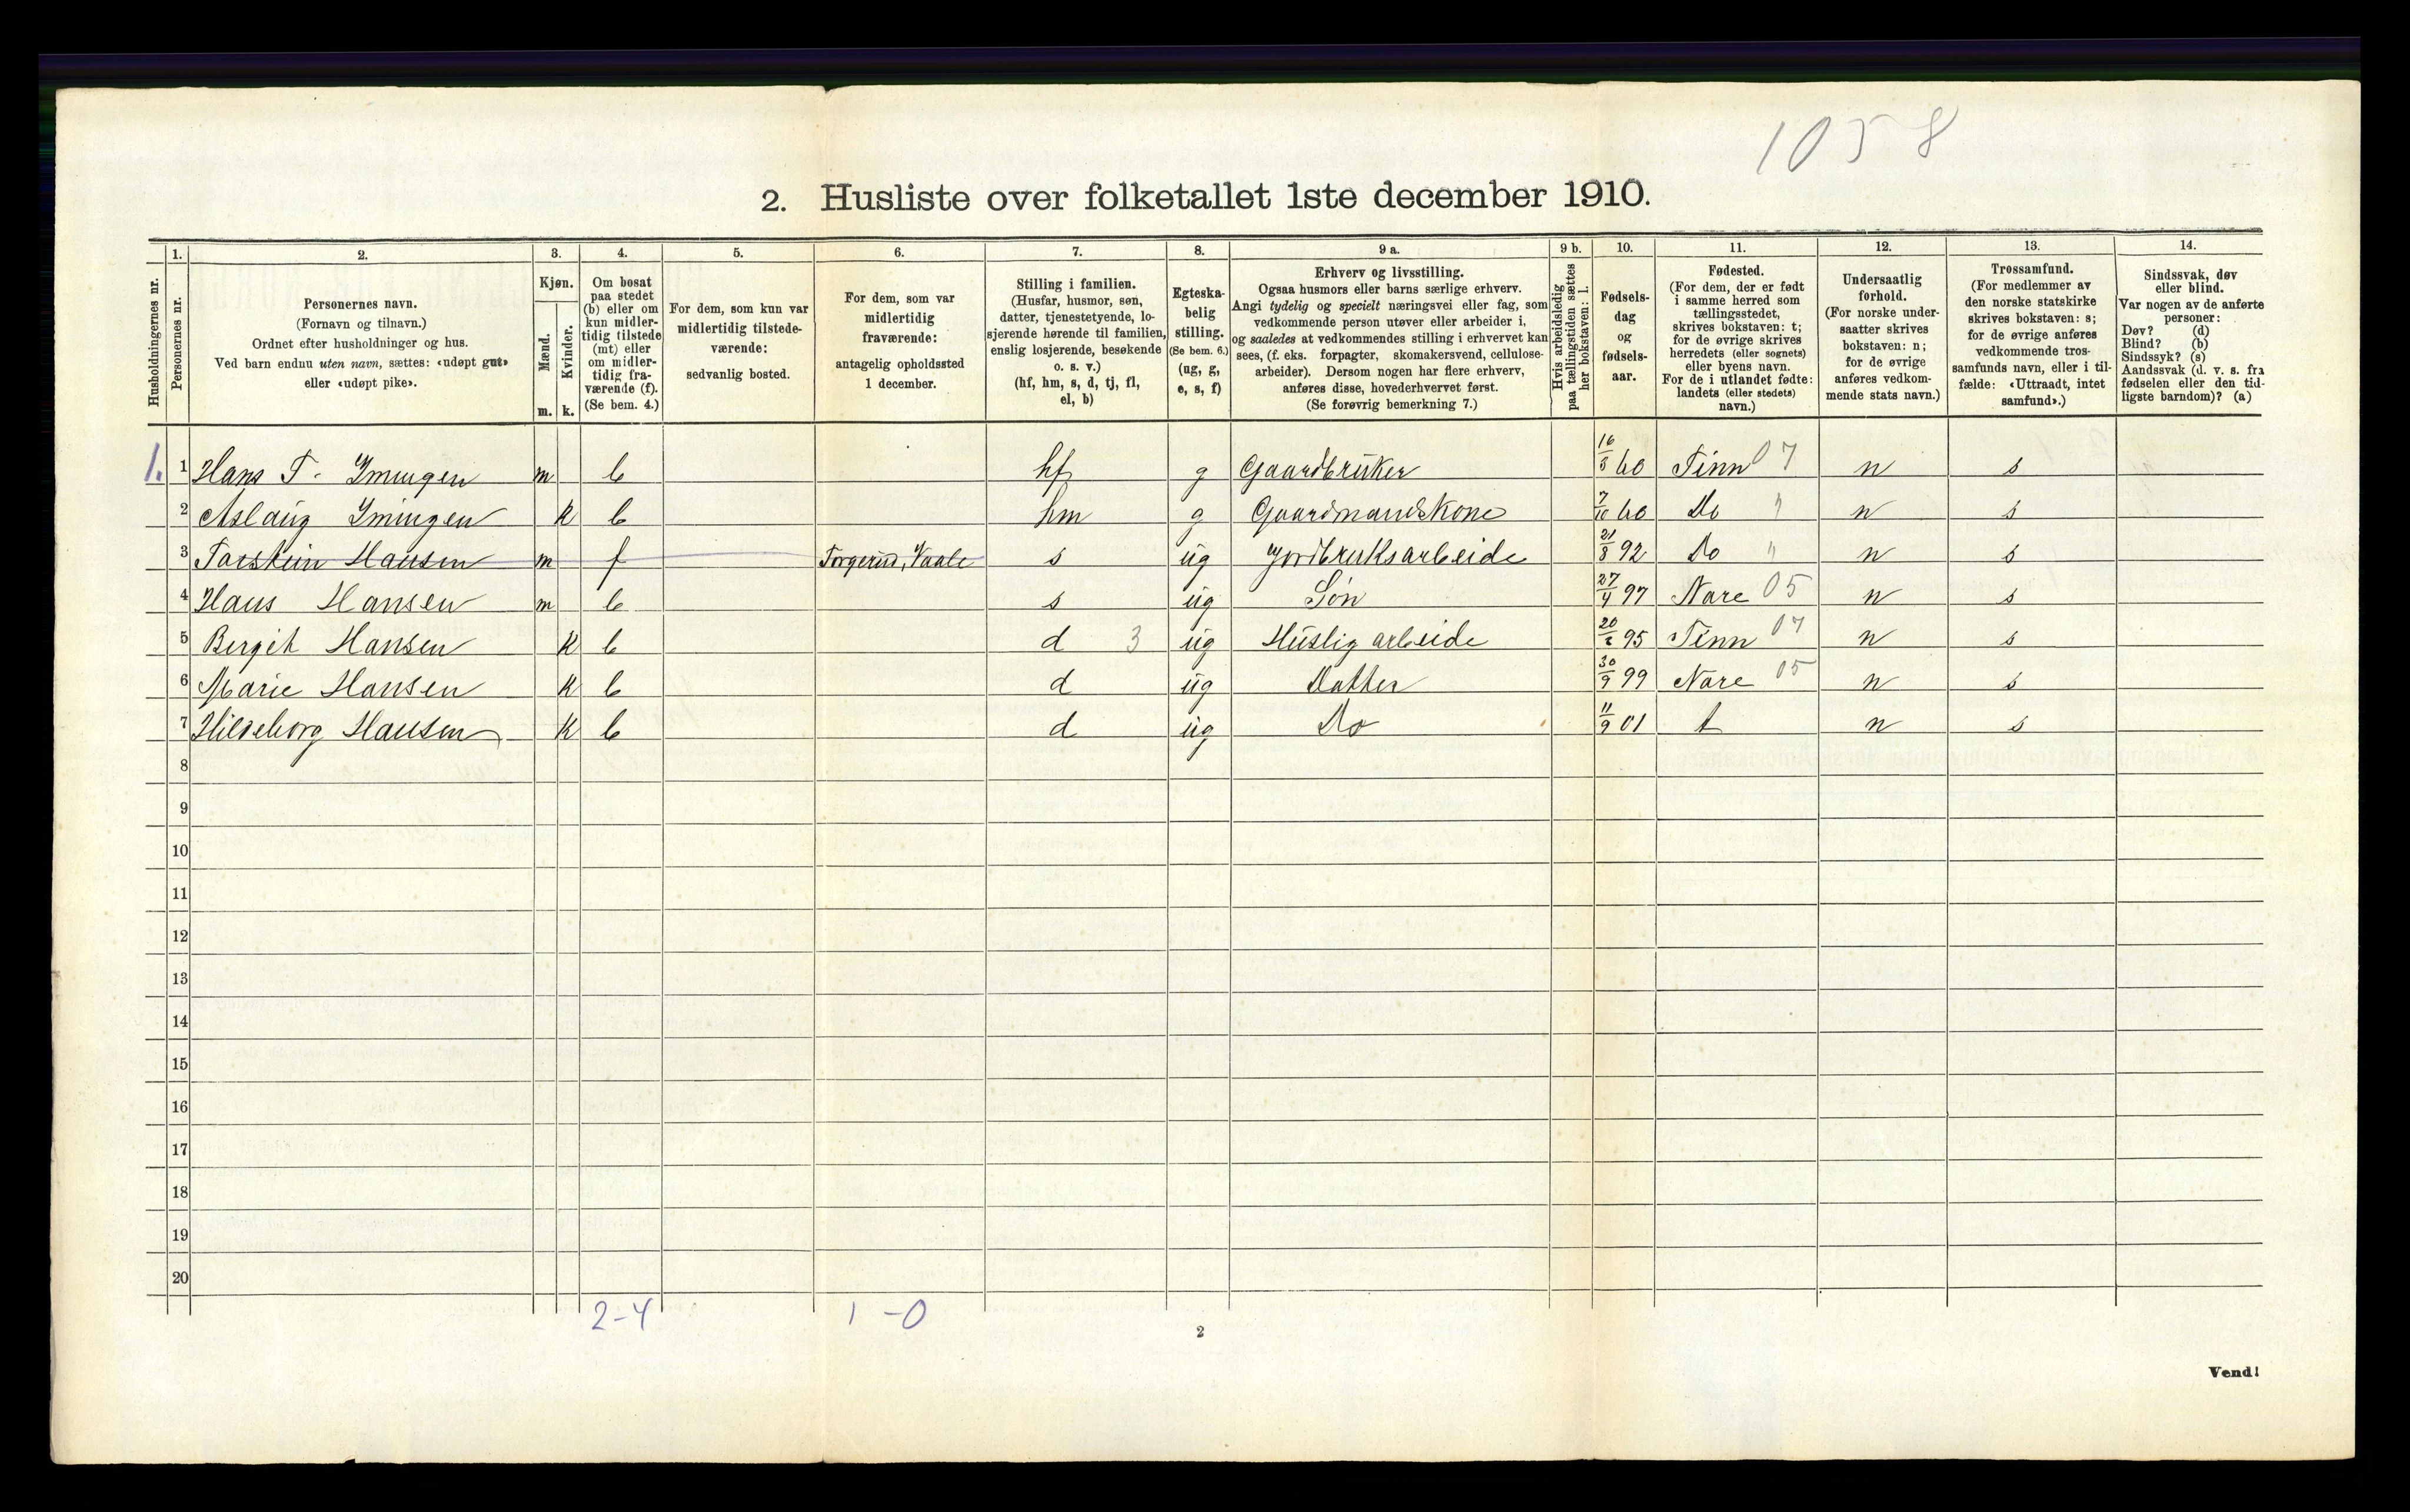 1058
2. Husliste over folketallet 1ste december 1910.
Husholdningernes nr.
1. Personernes nr.
2. Personernes navn.
(Fornavn og tilnavn.)
Ordnet efter husholdninger og hus.
Ved barn endnu uten navn, sættes: «udøpt gut»
eller «udøpt pike».
3. Kjøn.
Mænd. m.
Kvinder. k.
4. Om bosat
paa stedet
(b) eller om
kun midler-
tidig tilstede
(mt) eller
om midler-
tidig fra-
værende (f).
(Se bem. 4.)
5. For dem, som kun var
midlertidig tilstede-
værende:
sedvanlig bosted.
6. For dem, som var
midlertidig
fraværende:
antagelig opholdssted
1 december.
7. Stilling i familien.
(Husfar, husmor, søn,
datter, tjenestetyende, lo-
sjerende hørende til familien,
enslig losjerende, besøkende
o. s. v.)
(hf, hm, s, d, tj, fl,
el, b)
8. Egteska-
belig
stilling.
(Se bem. 6.)
(ug, g,
e, s, f)
9 a. Erhverv og livsstilling.
Ogsaa husmors eller barns særlige erhverv.
Angi tydelig og specielt næringsvei eller fag, som
vedkommende person utøver eller arbeider i,
og saaledes at vedkommendes stilling i erhvervet kan
sees, (f. eks. forpagter, skomakersvend, cellulose-
arbeider). Dersom nogen har flere erhverv,
anføres disse, hovederhvervet først.
(Se forøvrig bemerkning 7.)
9 b. Hvis arbeidsledig
paa tællingstiden sættes
her bokstaven: l.
10. Fødsels-
dag
og
fødsels-
aar.
11. Fødested.
(For dem, der er født
i samme herred som
tællingsstedet,
skrives bokstaven: t;
for de øvrige skrives
herredets (eller sognets)
eller byens navn.
For de i utlandet fødte:
landets (eller stedets)
navn.)
12. Undersaatlig
forhold.
(For norske under-
saatter skrives
bokstaven: n;
for de øvrige
anføres vedkom-
mende stats navn.)
13. Trossamfund.
(For medlemmer av
den norske statskirke
skrives bokstaven: s;
for de øvrige anføres
vedkommende tros-
samfunds navn, eller i til-
fælde: «Uttraadt, intet
samfund».)
14. Sindssvak, døv
eller blind.
Var nogen av de anførte
personer:
Døv? (d)
Blind? (b)
Sindssyk? (s)
Aandssvak (d. v. s. fra
fødselen eller den tid-
ligste barndom)? (a)
1. 1 Hans T. Imingen m b hf g Gaardbruker 16/3 60 Tinn 07 n s
2 Aslaug Imingen k b hm g Gaardmandskone 7/10 60 Do " n s
3 Torstein Hansen m f Torgerud, Vaale s ug Jordbruksarbeide 21/8 92 Do " n s
4 Hans Hansen m b s ug Søn 27/4 97 Nore 05 n s
5 Bergit Hansen k b d 3 ug Huslig arbeide 20/2 95 Tinn 07 n s
6 Marie Hansen k b d ug Datter 30/9 99 Nore 05 n s
7 Hildeborg Hansen k b d ug Do 11/9 01 t n s
8
9
10
11
12
13
14
15
16
17
18
19
20
2-4 1-0
2
Vend!